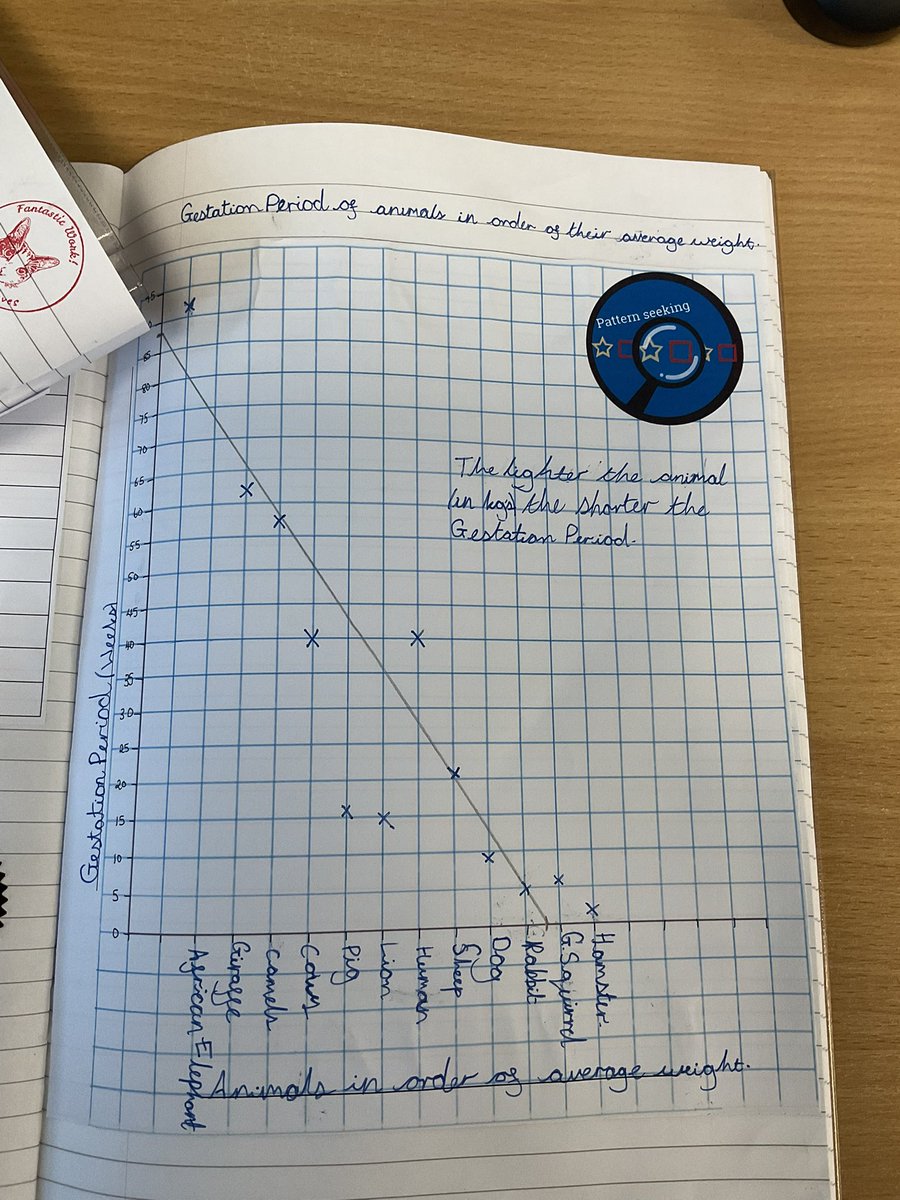 Gestation Period of animals in order of their average weight.
Fantastic Work!
Pattern seeking
The lighter the animal
(in kgs) the shorter the
Gestation Period.
Gestation Period (Weeks)
85
80
75
70
65
60
55
50
45
40
35
30
25
20
15
10
5
0
African Elephant
Giraffe
camels
Cows
Pig
Lion
Human
Sheep
Dog
Rabbit
G.Squirrel
Hamster
Animals in order of average weight.